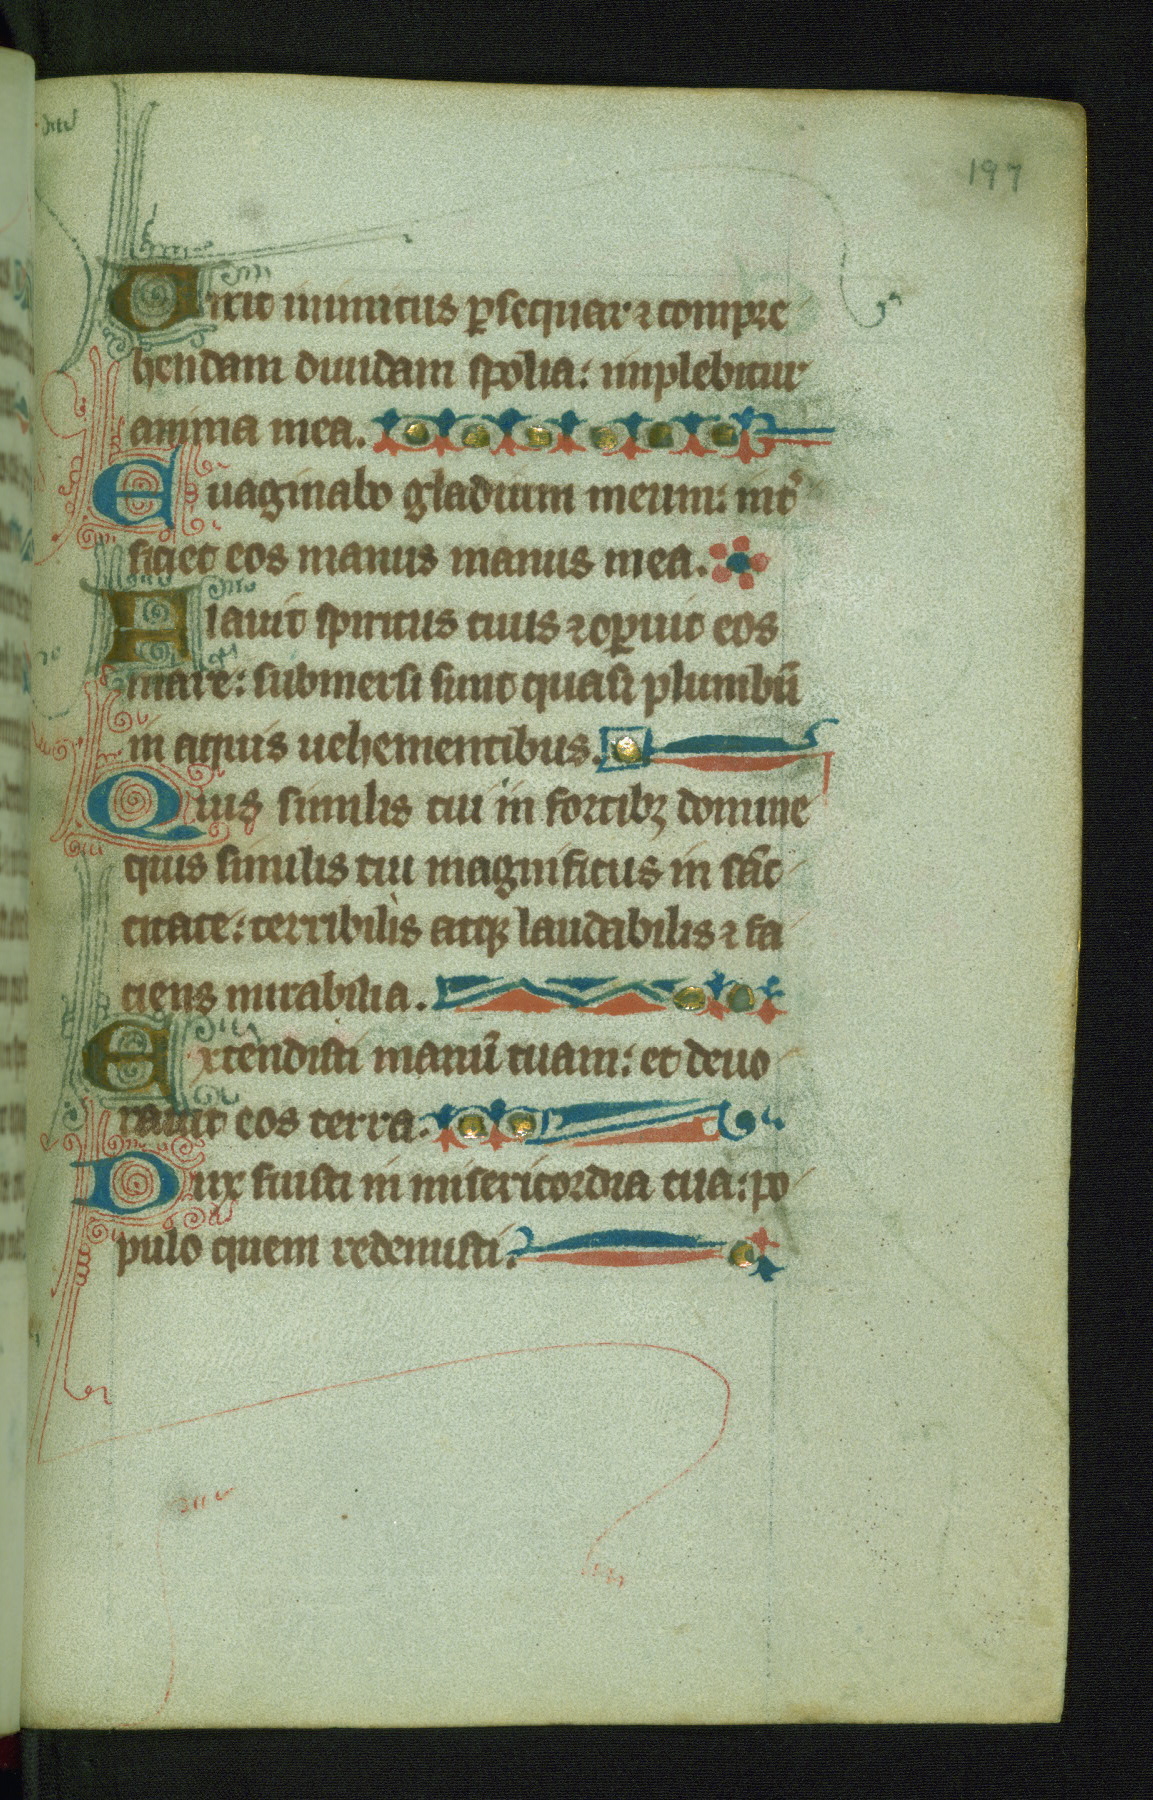 197
Dixit inimicus ꝑsequar ⁊ compre
hendam diuidam spolia: implebitur
anima mea.
Euaginabo gladium meum: int͛
ficiet eos manus manus mea.
Flauit spiritus tuus ⁊ oꝑuit eos
mare: submersi sunt quasi plumbū
in aquis uehementibus.
Quis similis tui in fortibꝫ domine
quis similis tui magnificus in sāc
titate: terribilis atqꝫ laudabilis ⁊ fa
ciens mirabilia.
Extendisti manū tuam: et deuo
rauit eos terra.
Dux fuisti in misericordia tua: po
pulo quem redemisti.